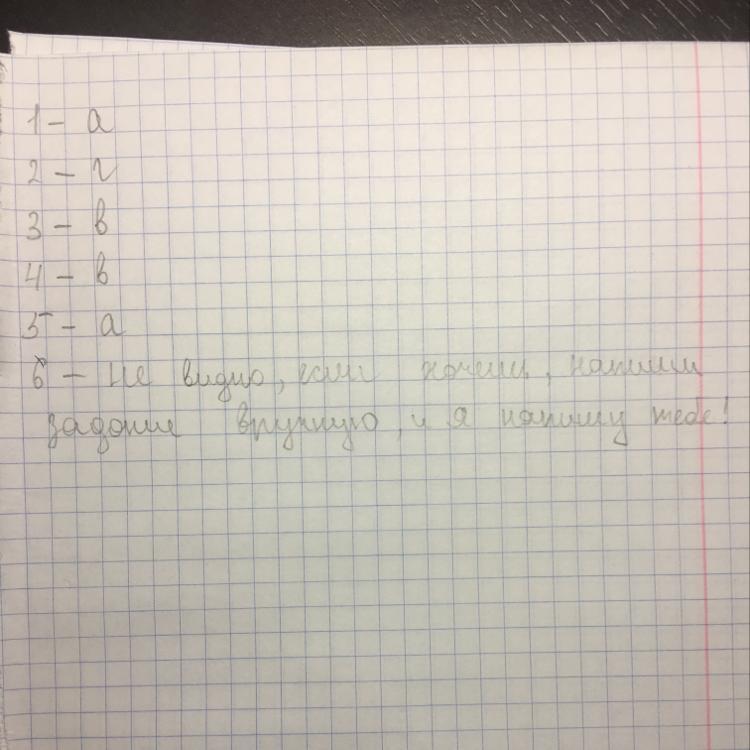 1 – а
2 – г
3 – в
4 – в
5 – а
6 – не видно, если хочешь, напиши
задание вручную, и я напишу тебе!